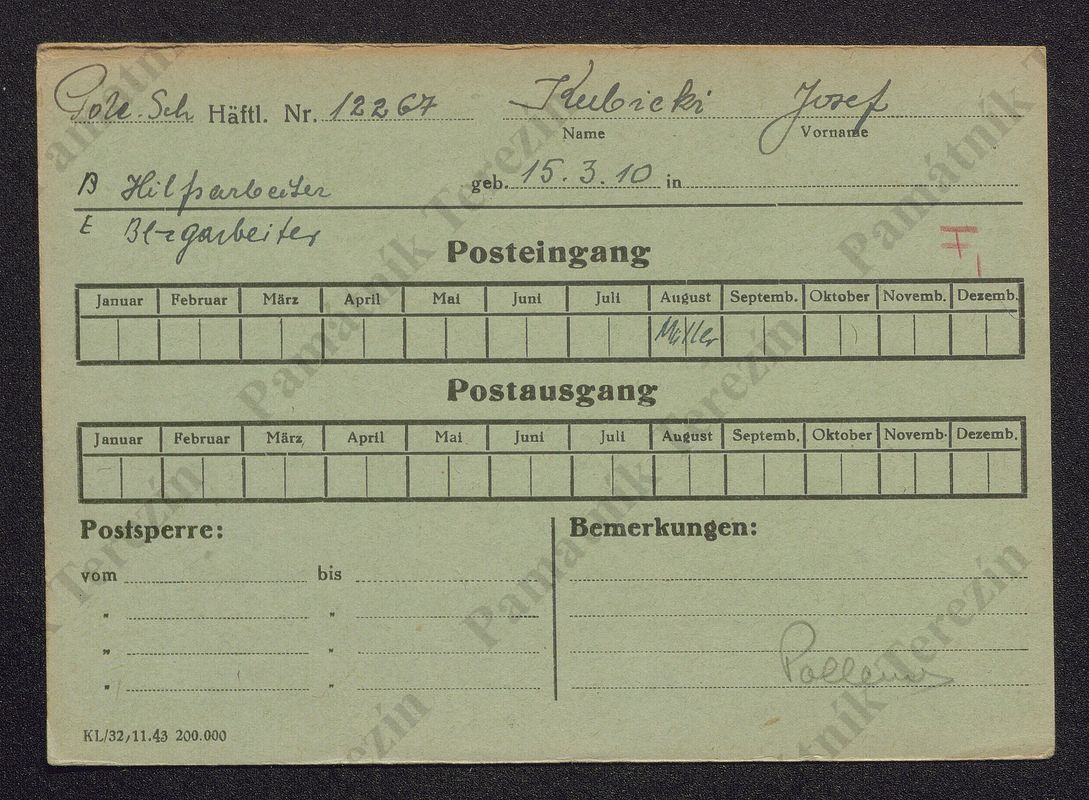 Pole. Sch Häftl. Nr. 12267 Kubicki Josef
Name Vorname
B Hilfsarbeiter geb. 15.3.10 in
E Bergarbeiter
Posteingang
Januar Februar März April Mai Juni Juli August Septemb. Oktober Novemb. Dezemb.
Müller
Postausgang
Januar Februar März April Mai Juni Juli August Septemb. Oktober Novemb. Dezemb.
Postsperre: Bemerkungen:
vom bis
" "
" "
" "
KL/32, 11.43 200.000
Památník Terezín